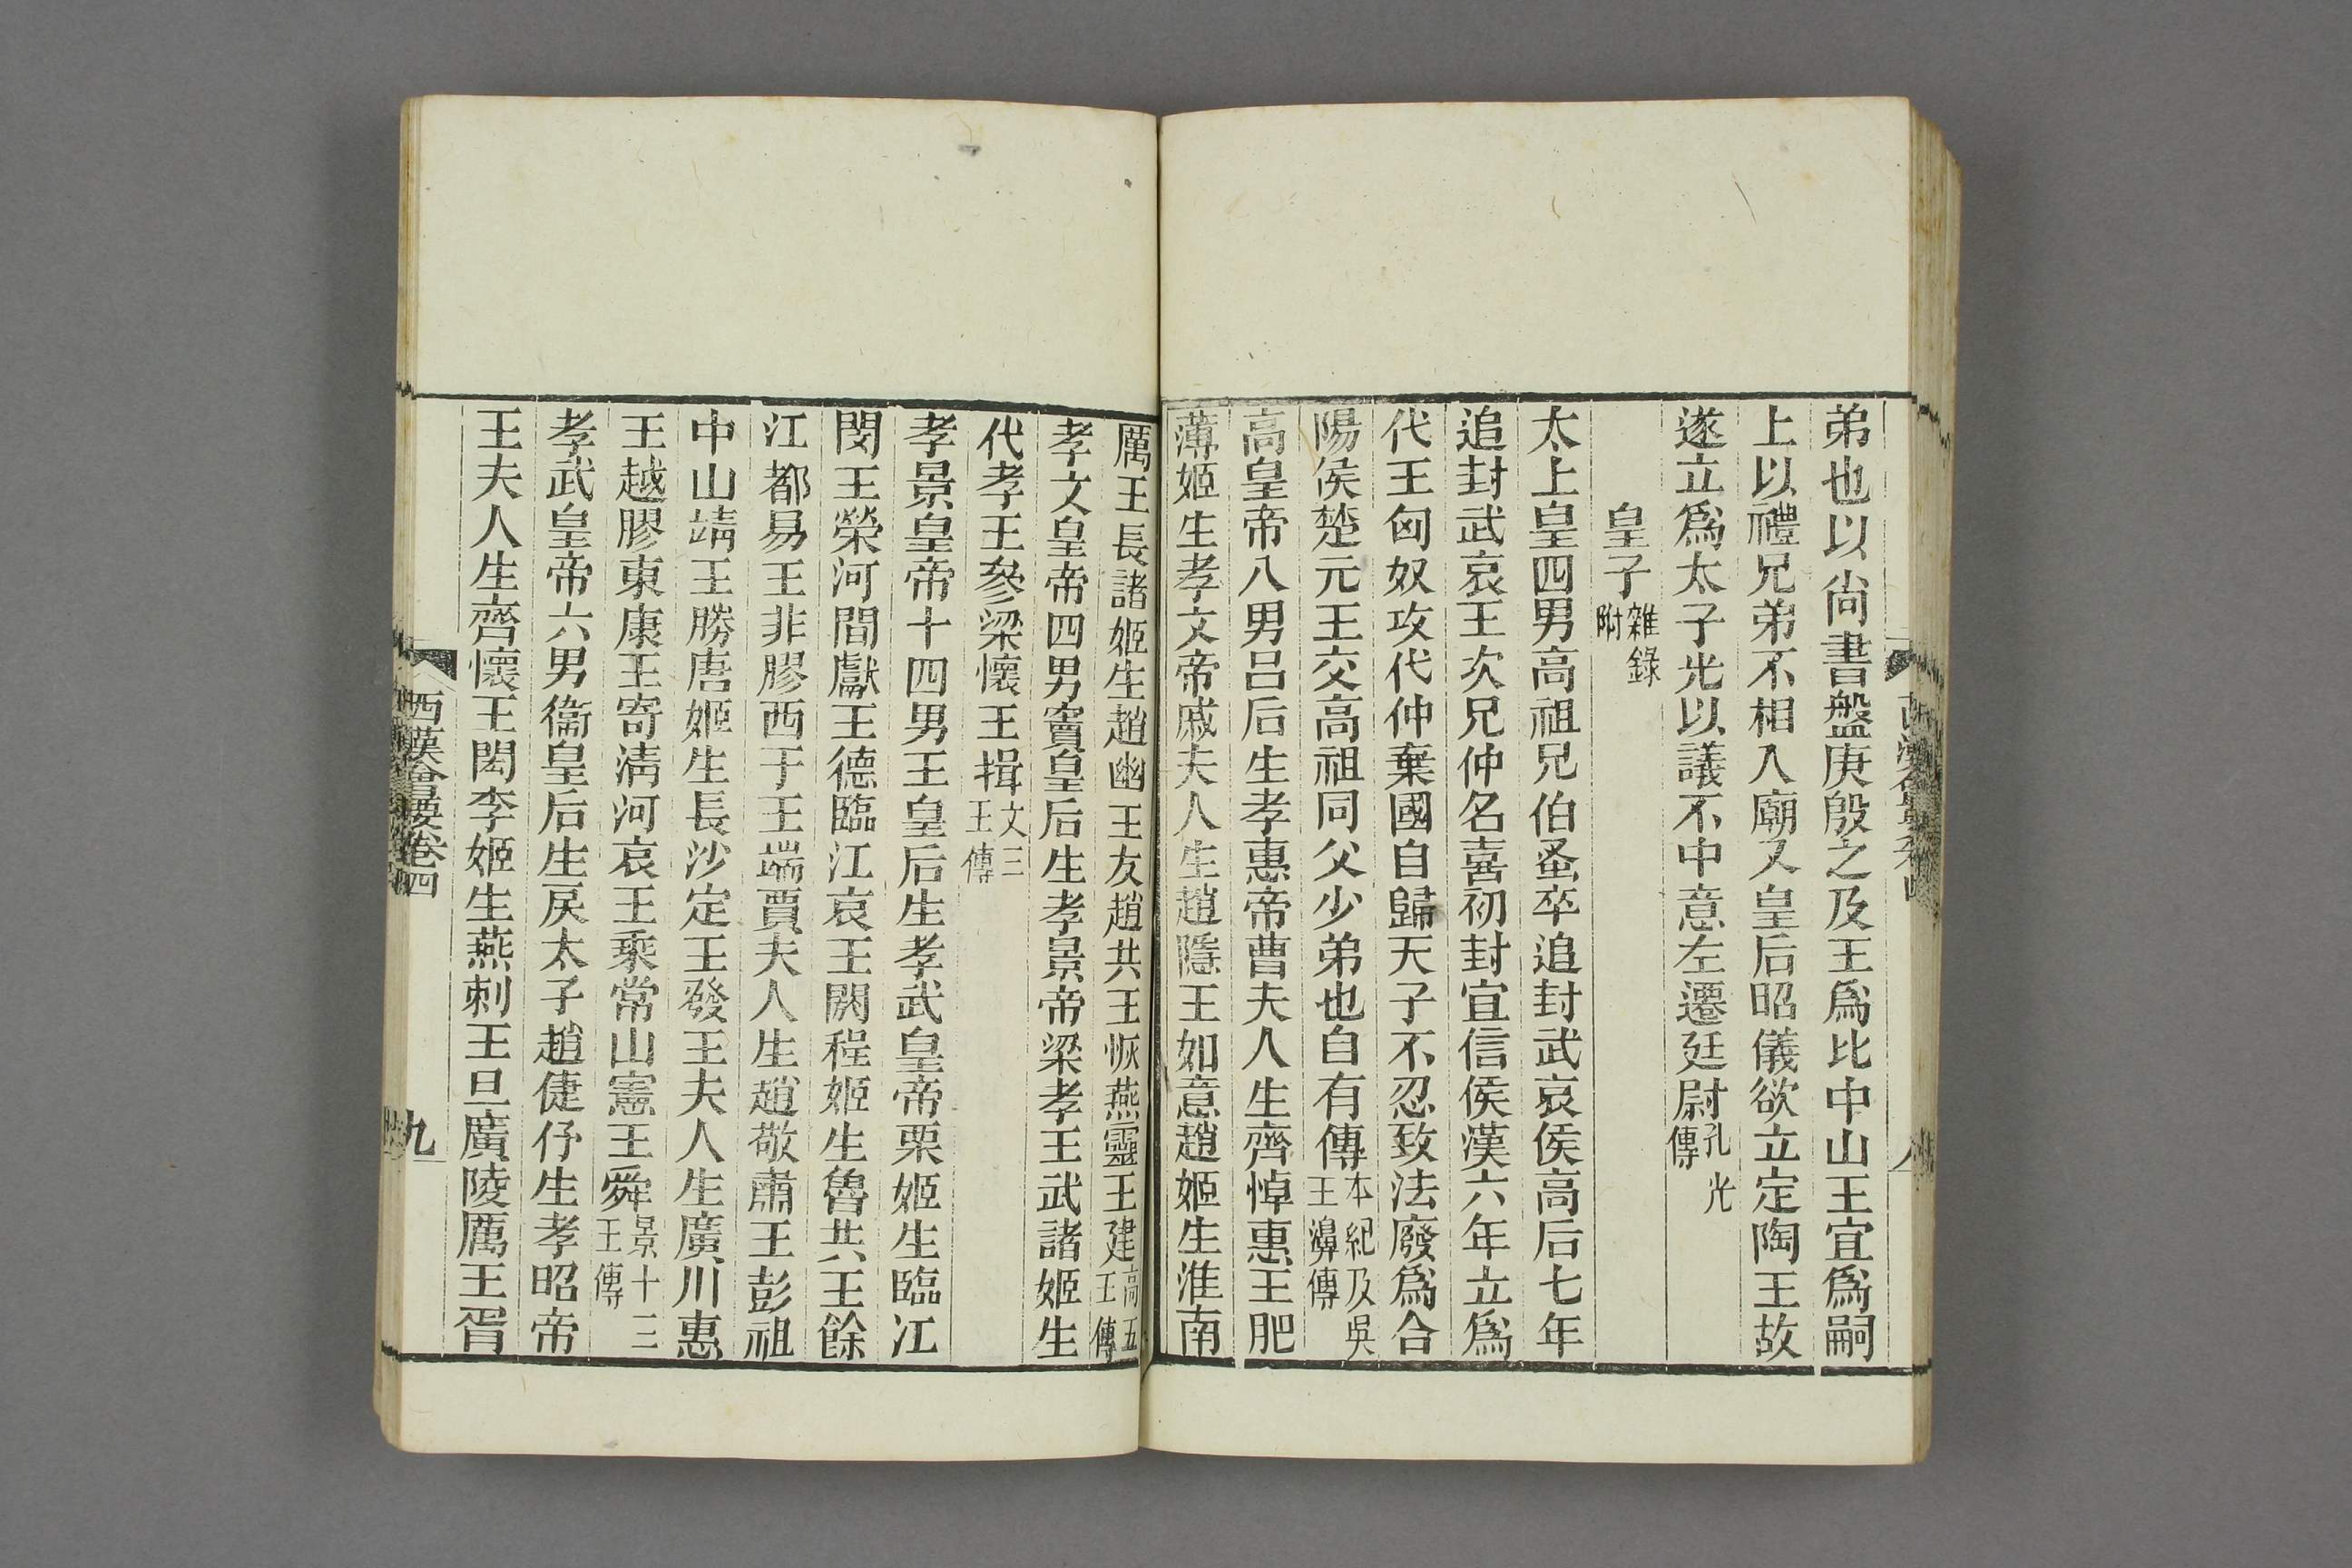 弟也以尙書盤庚殷之及王爲比中山王宜爲嗣
上以禮兄弟不相入廟又皇后昭儀欲立定陶王故
遂立爲太子光以議不中意左遷廷尉孔光傳
皇子雜錄附
太上皇四男高祖兄伯蚤卒追封武哀侯高后七年
追封武哀王次兄仲名喜初封宜信侯漢六年立爲
代王匈奴攻代仲棄國自歸天子不忍致法廢爲合
陽侯楚元王交高祖同父少弟也自有傳本紀及吳王濞傳
高皇帝八男呂后生孝惠帝曹夫人生齊悼惠王肥
薄姬生孝文帝戚夫人生趙隱王如意趙姬生淮南
厲王長諸姬生趙幽王友趙共王恢燕靈王建高五王傳
孝文皇帝四男竇皇后生孝景帝梁孝王武諸姬生
代孝王參梁懷王揖文三王傳
孝景皇帝十四男王皇后生孝武皇帝栗姬生臨江
閔王榮河間獻王德臨江哀王閼程姬生魯共王餘
江都易王非膠西于王端賈夫人生趙敬肅王彭祖
中山靖王勝唐姬生長沙定王發王夫人生廣川惠
王越膠東康王寄淸河哀王乘常山憲王舜景十三王傳
孝武皇帝六男衞皇后生戾太子趙倢伃生孝昭帝
王夫人生齊懷王閎李姬生燕刺王旦廣陵厲王胥
西漢會要卷四
九